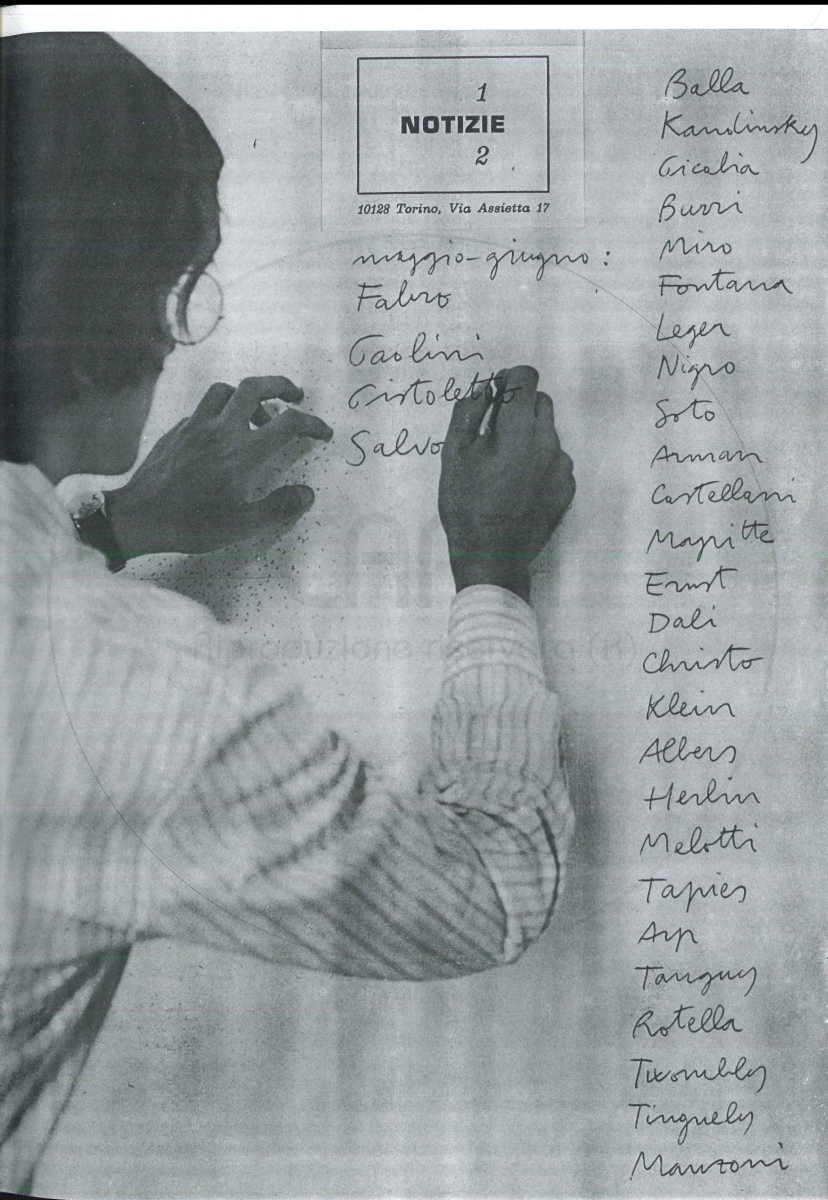 1
NOTIZIE
2
10128 Torino, Via Assietta 17
maggio-giugno:
Fabro
Paolini
Pistoletto
Salvo
Balla
Kandinsky
Picabia
Burri
Miro
Fontana
Leger
Nigro
Soto
Arman
Castellani
Magritte
Ernst
Dali
Christo
Klein
Albers
Herbin
Melotti
Tapies
Arp
Tanguy
Rotella
Twombly
Tinguely
Manzoni
Riproduzione riservata (R)